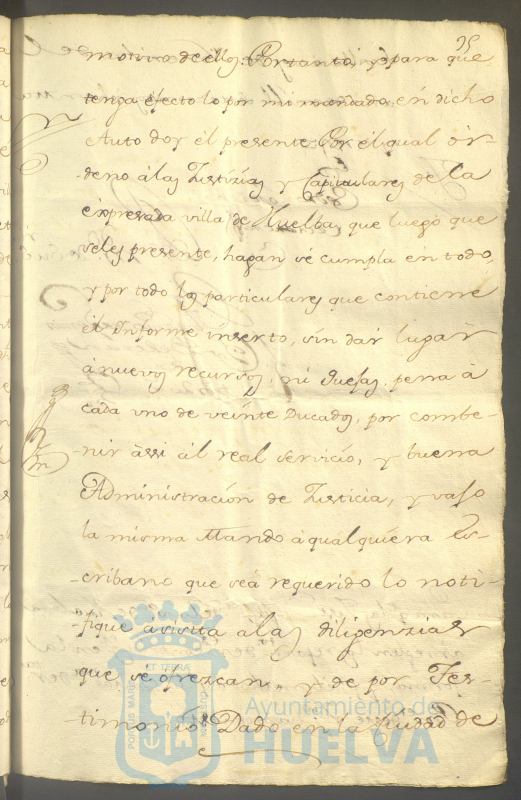 95
motivo de ellos. Portanto, y para que
tenga efecto lo por mi mandado, en dicho
Auto doy el presente: Por el qual or-
deno á las Justizias y Capitulares de la
expresada villa de Huelba, que luego que
seles presente, hagan se cumpla en todo,
y por todo los particulares que contiene
el Informe inserto, sin dar lugar
á nuevos recursos, ni quejas, pena á
cada uno de veinte Ducados, por combe-
nir assi al real servicio, y buena
Administración de Justicia, y vajo
la misma Mando á qualquiera Es-
cribano que sea requerido lo noti-
fique asista alas diligenzias
que se ofrezcan, y de por Tes-
timonio. Dado en la Ciudad de
PORTUS MARIS
ET TERRÆ
CUSTODIA
Ayuntamiento de
HUELVA